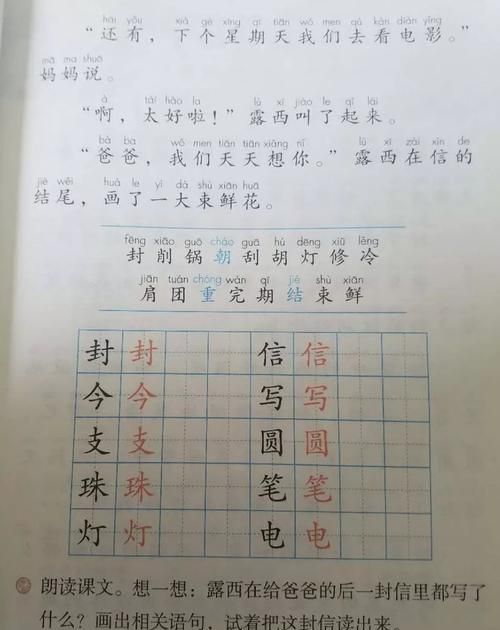 hái yǒu xià gè xīng qī tiān wǒ men qù kàn diàn yǐng
“还有，下个星期天我们去看电影。”
mā ma shuō
妈妈说。
ā tài hǎo la lù xī jiào le qǐ lái
“啊，太好啦！”露西叫了起来。
bà ba wǒ men tiān tiān xiǎng nǐ lù xī zài xìn de
“爸爸，我们天天想你。”露西在信的
jié wěi huà le yí dà shù xiān huā
结尾，画了一大束鲜花。
fēng xiāo guō cháo guā hú dēng xiū lěng
封削锅朝刮胡灯修冷
jiān tuán chóng wán qī jié shù xiān
肩团重完期结束鲜
封封 信信
今今 写写
支支 圆圆
珠珠 笔笔
灯灯 电电
朗读课文。想一想：露西在给爸爸的后一封信里都写了
什么？画出相关语句，试着把这封信读出来。